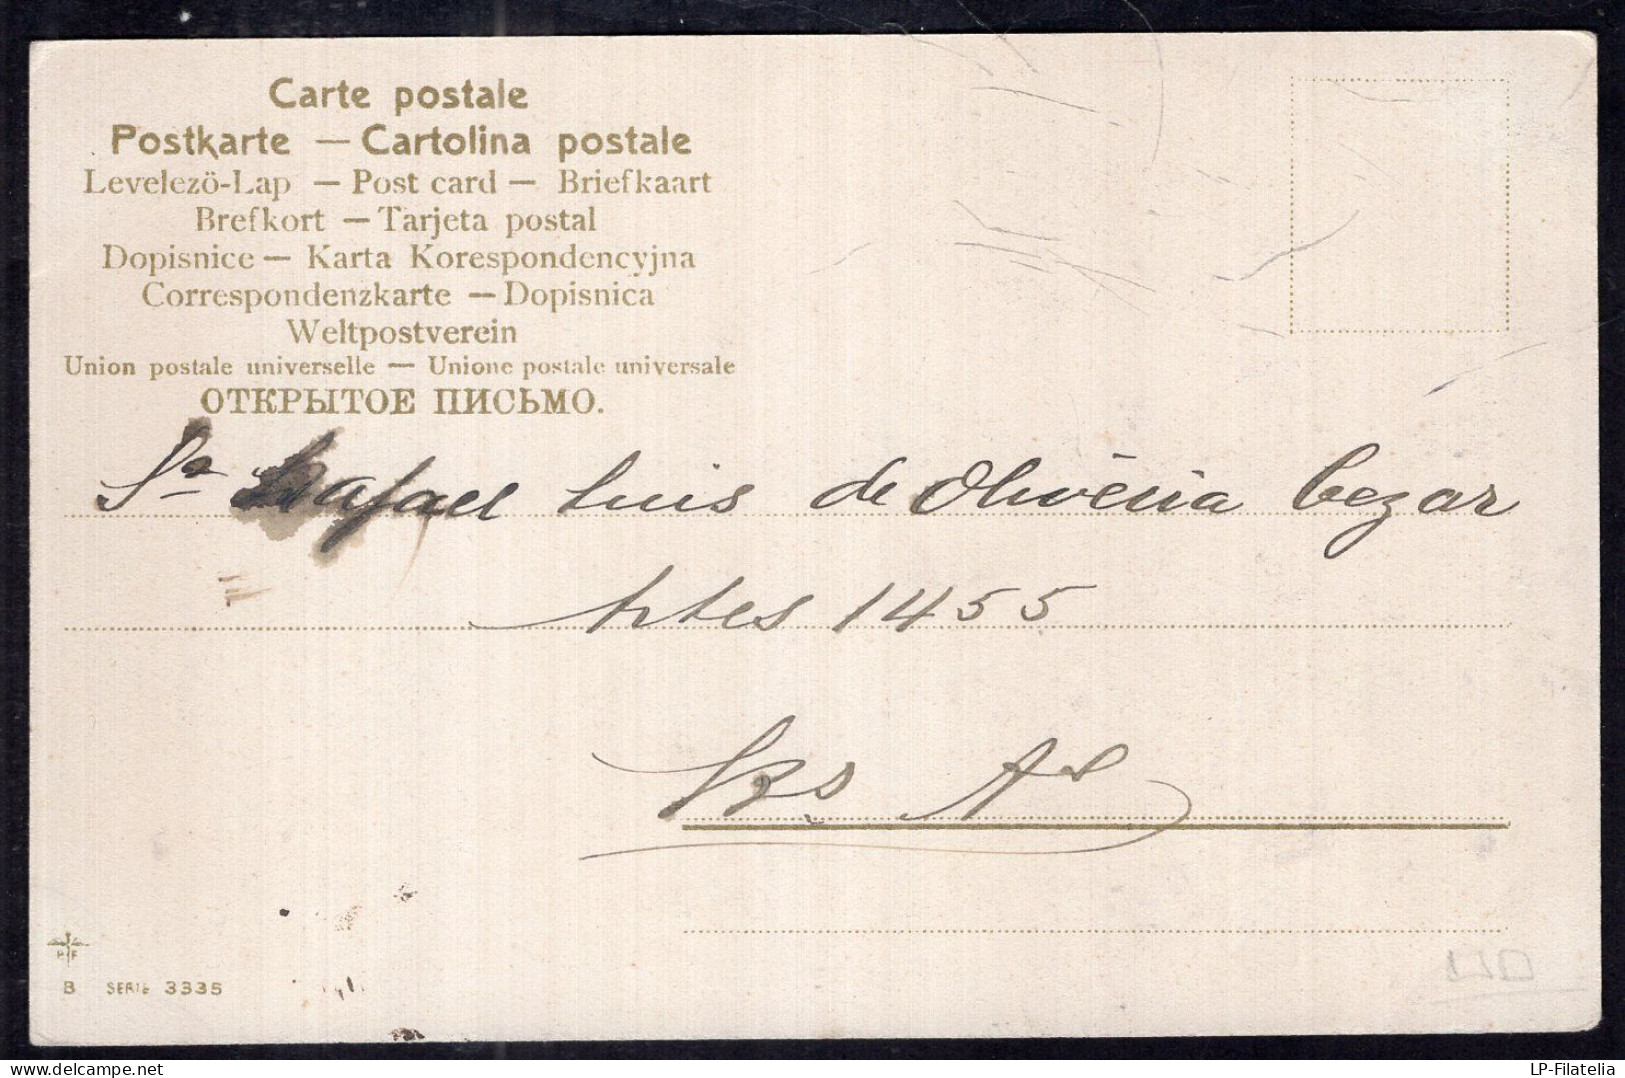 Carte postale
Postkarte — Cartolina postale
Levelezö-Lap — Post card — Briefkaart
Brefkort — Tarjeta postal
Dopisnice — Karta Korespondencyjna
Correspondenzkarte — Dopisnica
Weltpostverein
Union postale universelle — Unione postale universale
ОТКРЫТОЕ ПИСЬМО.
Sr Rafael Luis de Oliveria Cezar
Artes 1455
Bs As
B SERIE 3335
LP-Filatelia